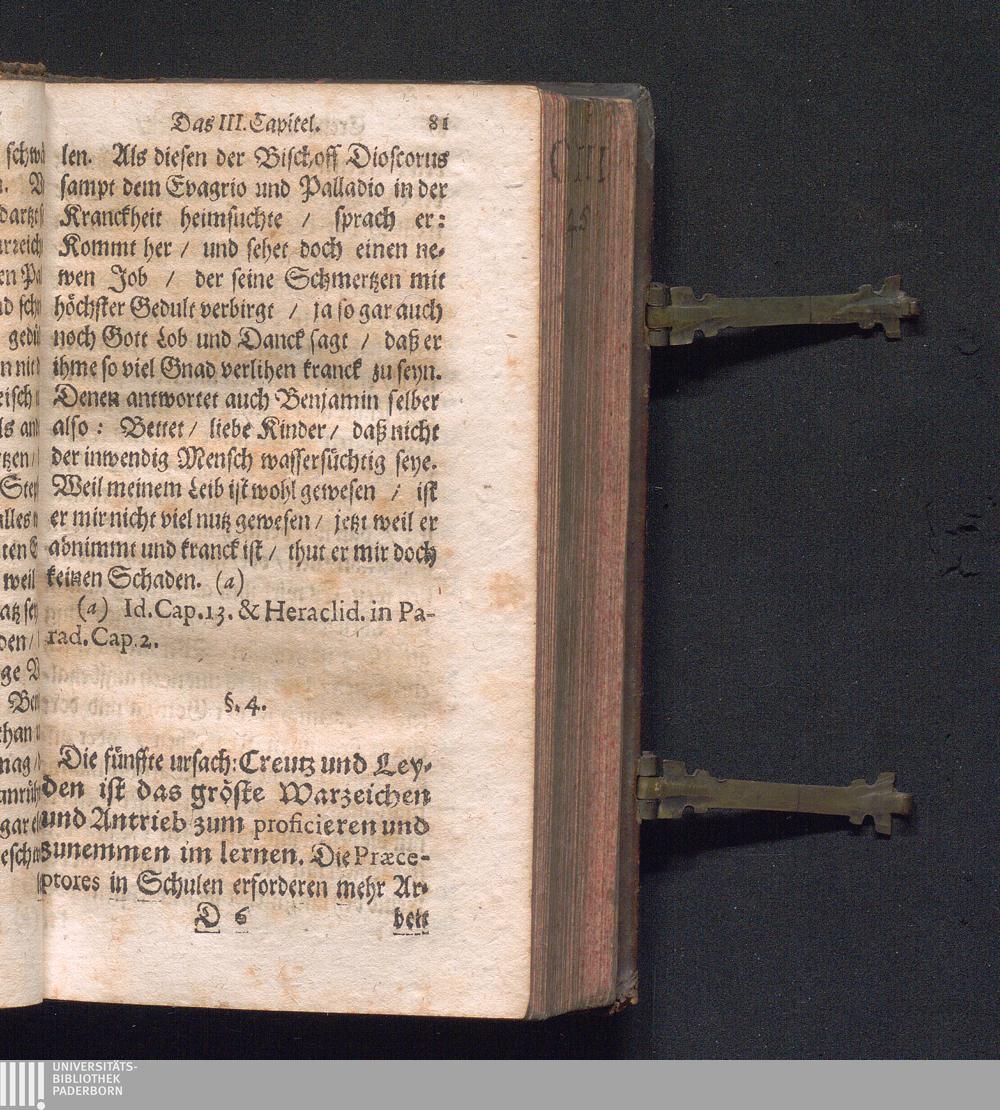 Das III. Capitel. 81
len. Als diesen der Bischoff Dioscorus
sampt dem Evagrio und Palladio in der
Kranckheit heimsuchte / sprach er:
Kommt her / und sehet doch einen ne-
wen Job / der seine Schmertzen mit
höchster Gedult verbirgt / ja so gar auch
noch Gott Lob und Danck sagt / daß er
ihme so viel Gnad verlihen kranck zu seyn.
Denen antwortet auch Benjamin selber
also: Bettet / liebe Kinder / daß nicht
der inwendig Mensch wassersüchtig seye.
Weil meinem Leib ist wohl gewesen / ist
er mir nicht viel nutz gewesen / jetzt weil er
abnimmt und kranck ist / thut er mir doch
keinen Schaden. (a)
(a) Id. Cap. 13. & Heraclid. in Pa-
rad. Cap. 2.
§. 4.
Die fünffte ursach: Creutz und Ley-
den ist das gröste Warzeichen
und Antrieb zum proficieren und
zunemmen im lernen. Die Præce-
ptores in Schulen erforderen mehr Ar-
D 6 beit
C III
UNIVERSITÄTS-
BIBLIOTHEK
PADERBORN